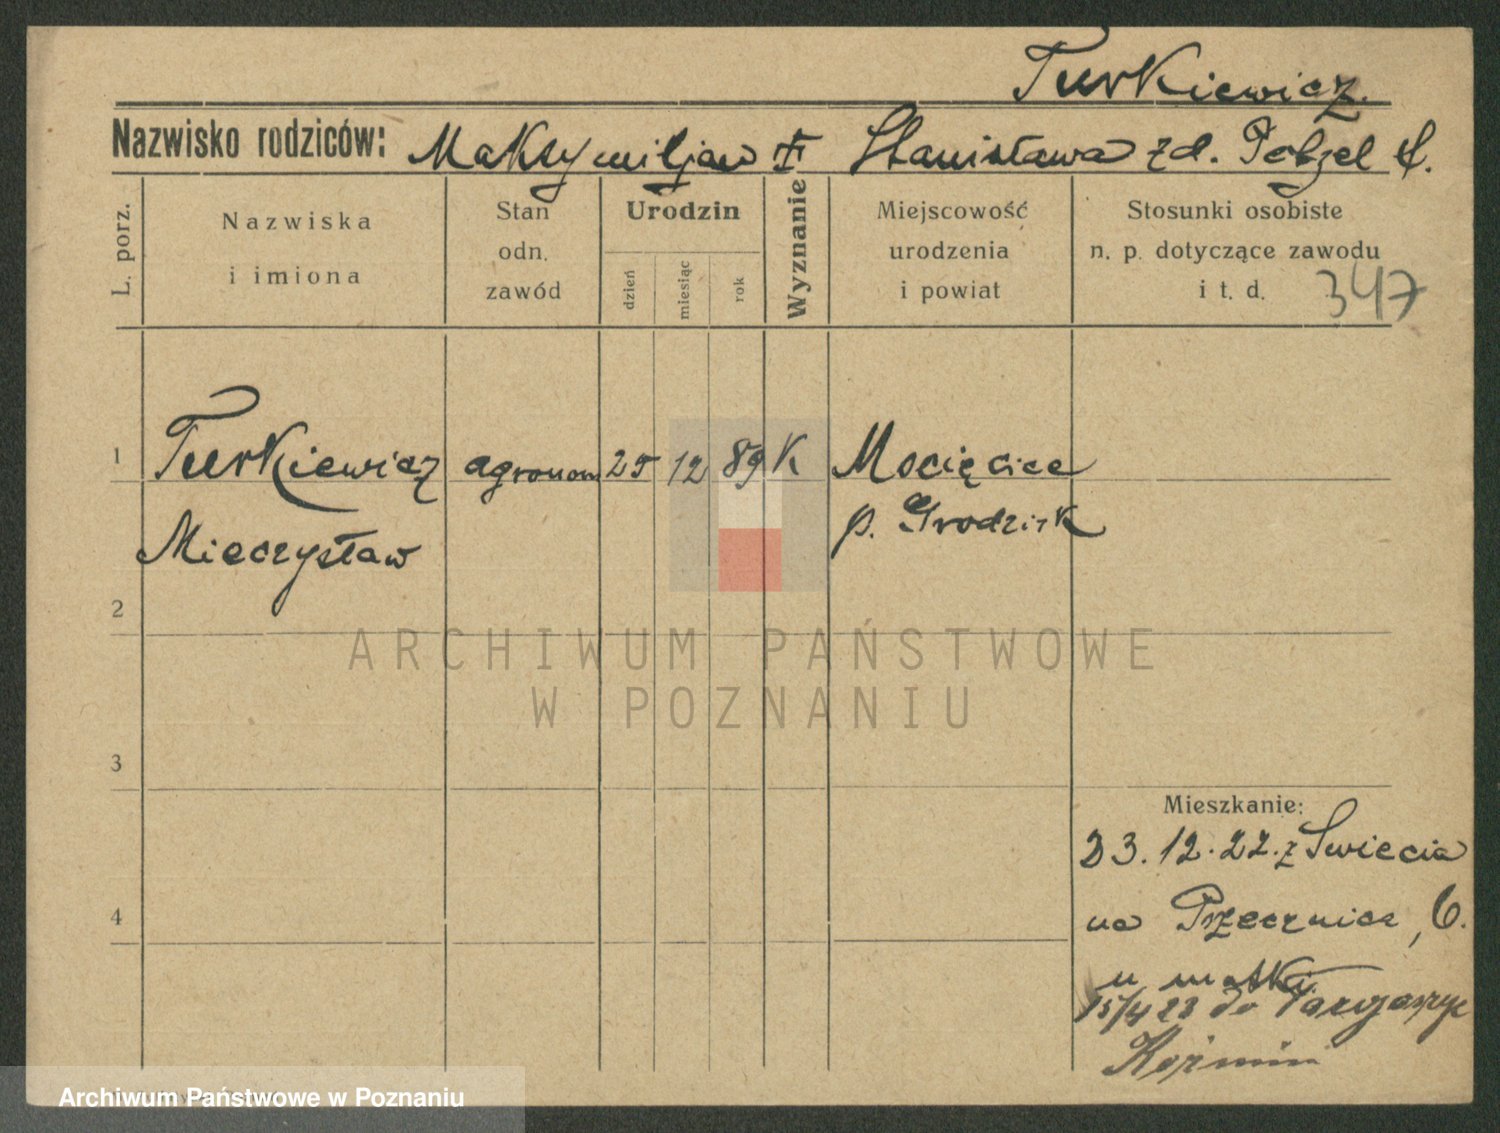 Turkiewicz.
Nazwisko rodziców: Maksymiljan Stanisława zd.
L. porz.
Nazwiska
i imiona
Stan
odn.
zawód
Urodzin
dzień
miesiąc
rok
Wyznanie
Miejscowość
urodzenia
i powiat
Stosunki osobiste
n. p. dotyczące zawodu
i t. d.
347
1 Turkiewicz agronom 25 12 89 K Mocięcice
p. Grodzisk
Mieczysław
2
ARCHIWUM PAŃSTWOWE
W POZNANIU
3
Mieszkanie:
23.12.22. z Swiecia
4
na Przecznica, 6.
u matki
15/4 23 do
Koźmin
Archiwum Państwowe w Poznaniu